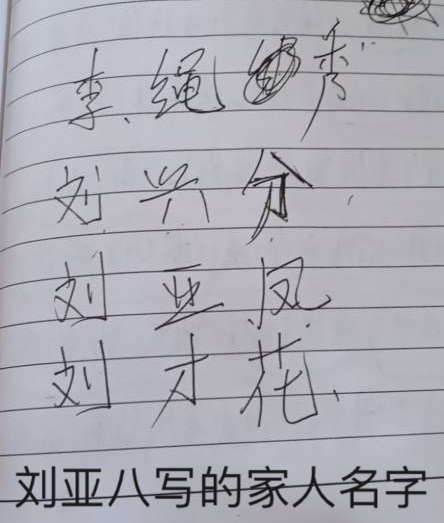 李绳秀
刘兴分
刘亚凤
刘才花
刘亚八写的家人名字